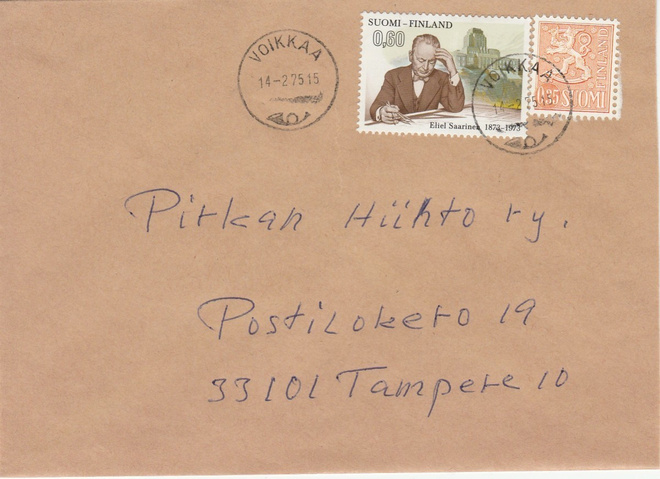 VOIKKAA
14-2.75.15
SUOMI-FINLAND
0,60
Eliel Saarinen 1873-1973
VOIKKAA
0,35 SUOMI
FINLAND
Pitkän Hiihto ry.
Postilokero 19
33101 Tampere 10